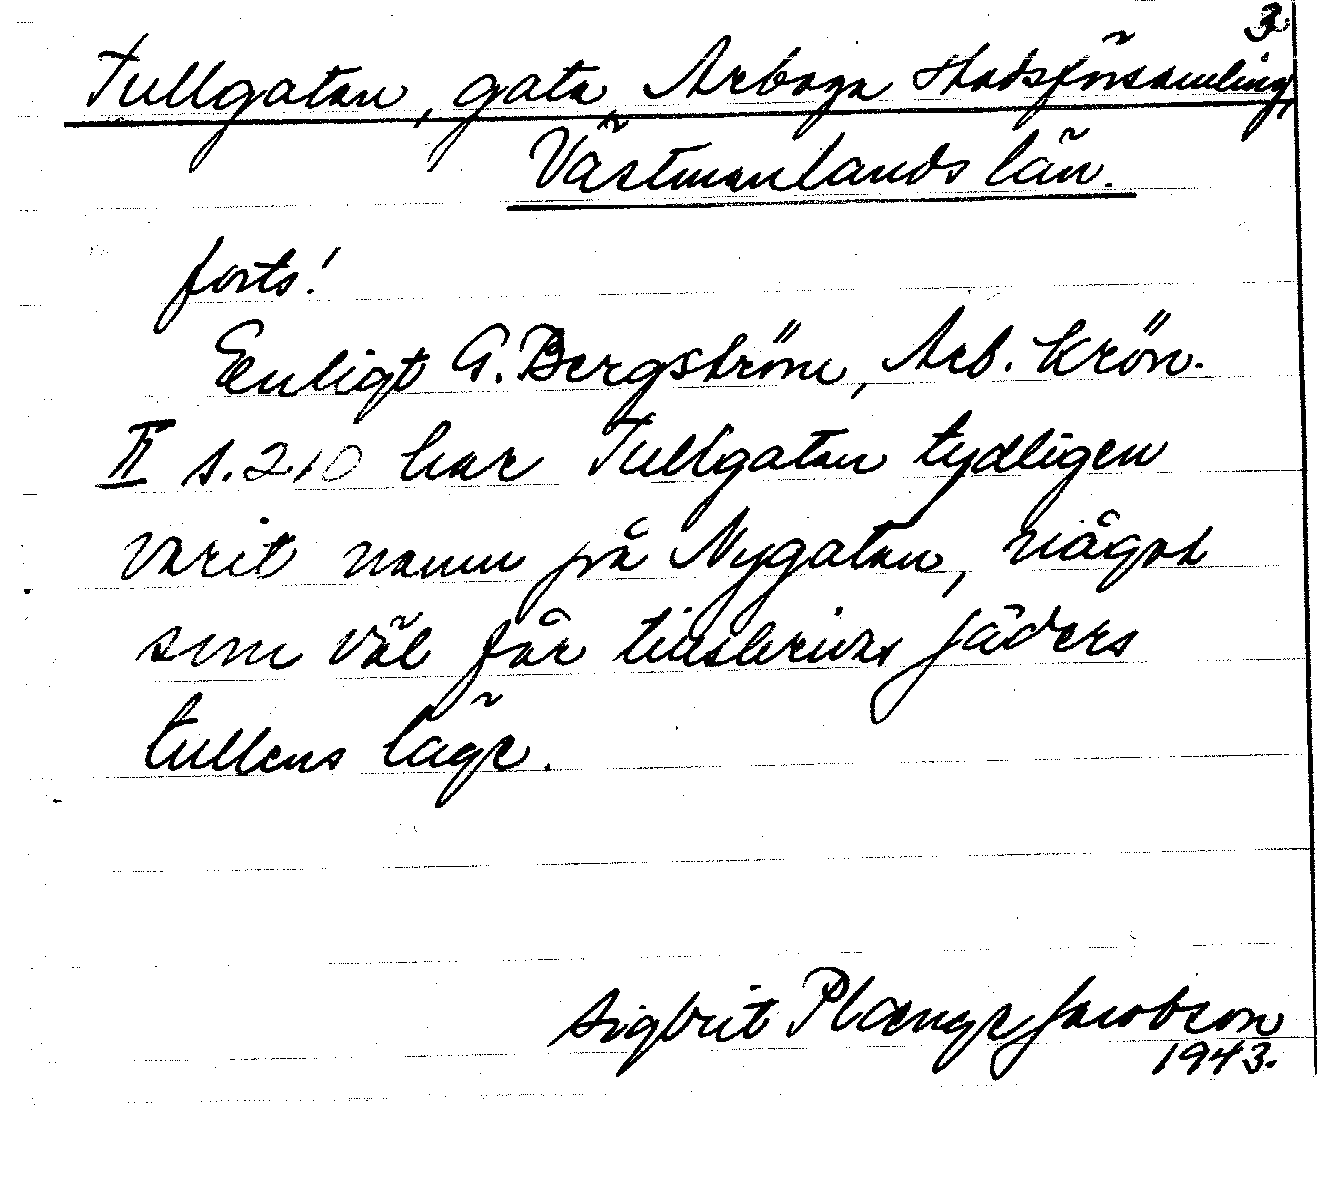 3.
Tullgatan, gata, Arboga Stadsförsamling,
Västmanlands län.
forts!
Enligt G. Bergström, Arb. Krön.
II s. 210 har Tullgatan tydligen
varit namn på Nygatan, något
som väl får tillskrivas Jäders
tullens läge.
Sigbrit Plænge Jacobson
1943.